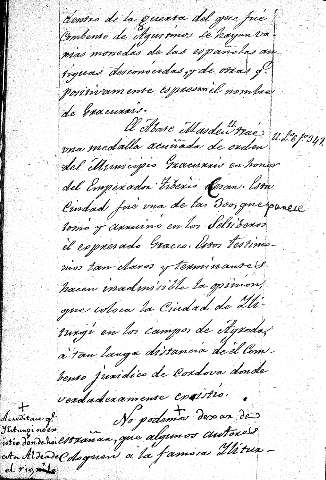 dentro de la puerta del que fué
Combento de Agustinos se hayan va-
rias monedas de las españolas an-
tiguas desconocidas, y de otras q.
positivamente espresan el nombre
de Gracurris.
El Abate Masdeu trae
una medalla acuñada de orden
del Municipio Gracurris en honor
del Emperador Tiberio Cesar. Esta
Ciudad fué una de las 300, que parece
tomó y arruinó en los Celtiberos
el espresado Graco. Estos testimo-
nios tan claros y terminantes
hacen inadmisible la opinion,
que coloca la Ciudad de Ili-
turgi en los campos de Agreda,
á tan larga distancia de el Com-
bento juridico de Cordova donde
verdaderamente existió.
No podemos dexar de
estrañar, que algunos autores
coloquen a la famosa Ilitur-
Acreditase q.
Iliturgi no ex
istio donde hoi
esta Aldea de
el